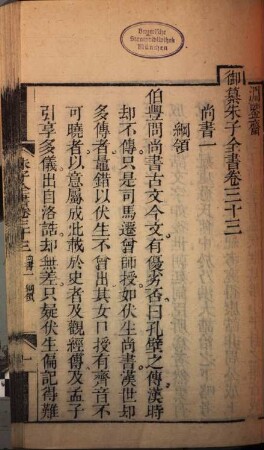 Bayerische
Staatsbibliothek
München
御纂朱子全書卷三十三
尚書一
綱領
伯豐問尚書古文今文有優劣否曰孔壁之傳漢時
却不傳只是司馬遷曾師授如伏生尚書漢世却
多傳者鼂錯以伏生不曾出其女口授有齊音不
可曉者以意屬成此載於史者及觀經傳及孟子
引享多儀出自洛誥却無差只疑伏生偏記得難